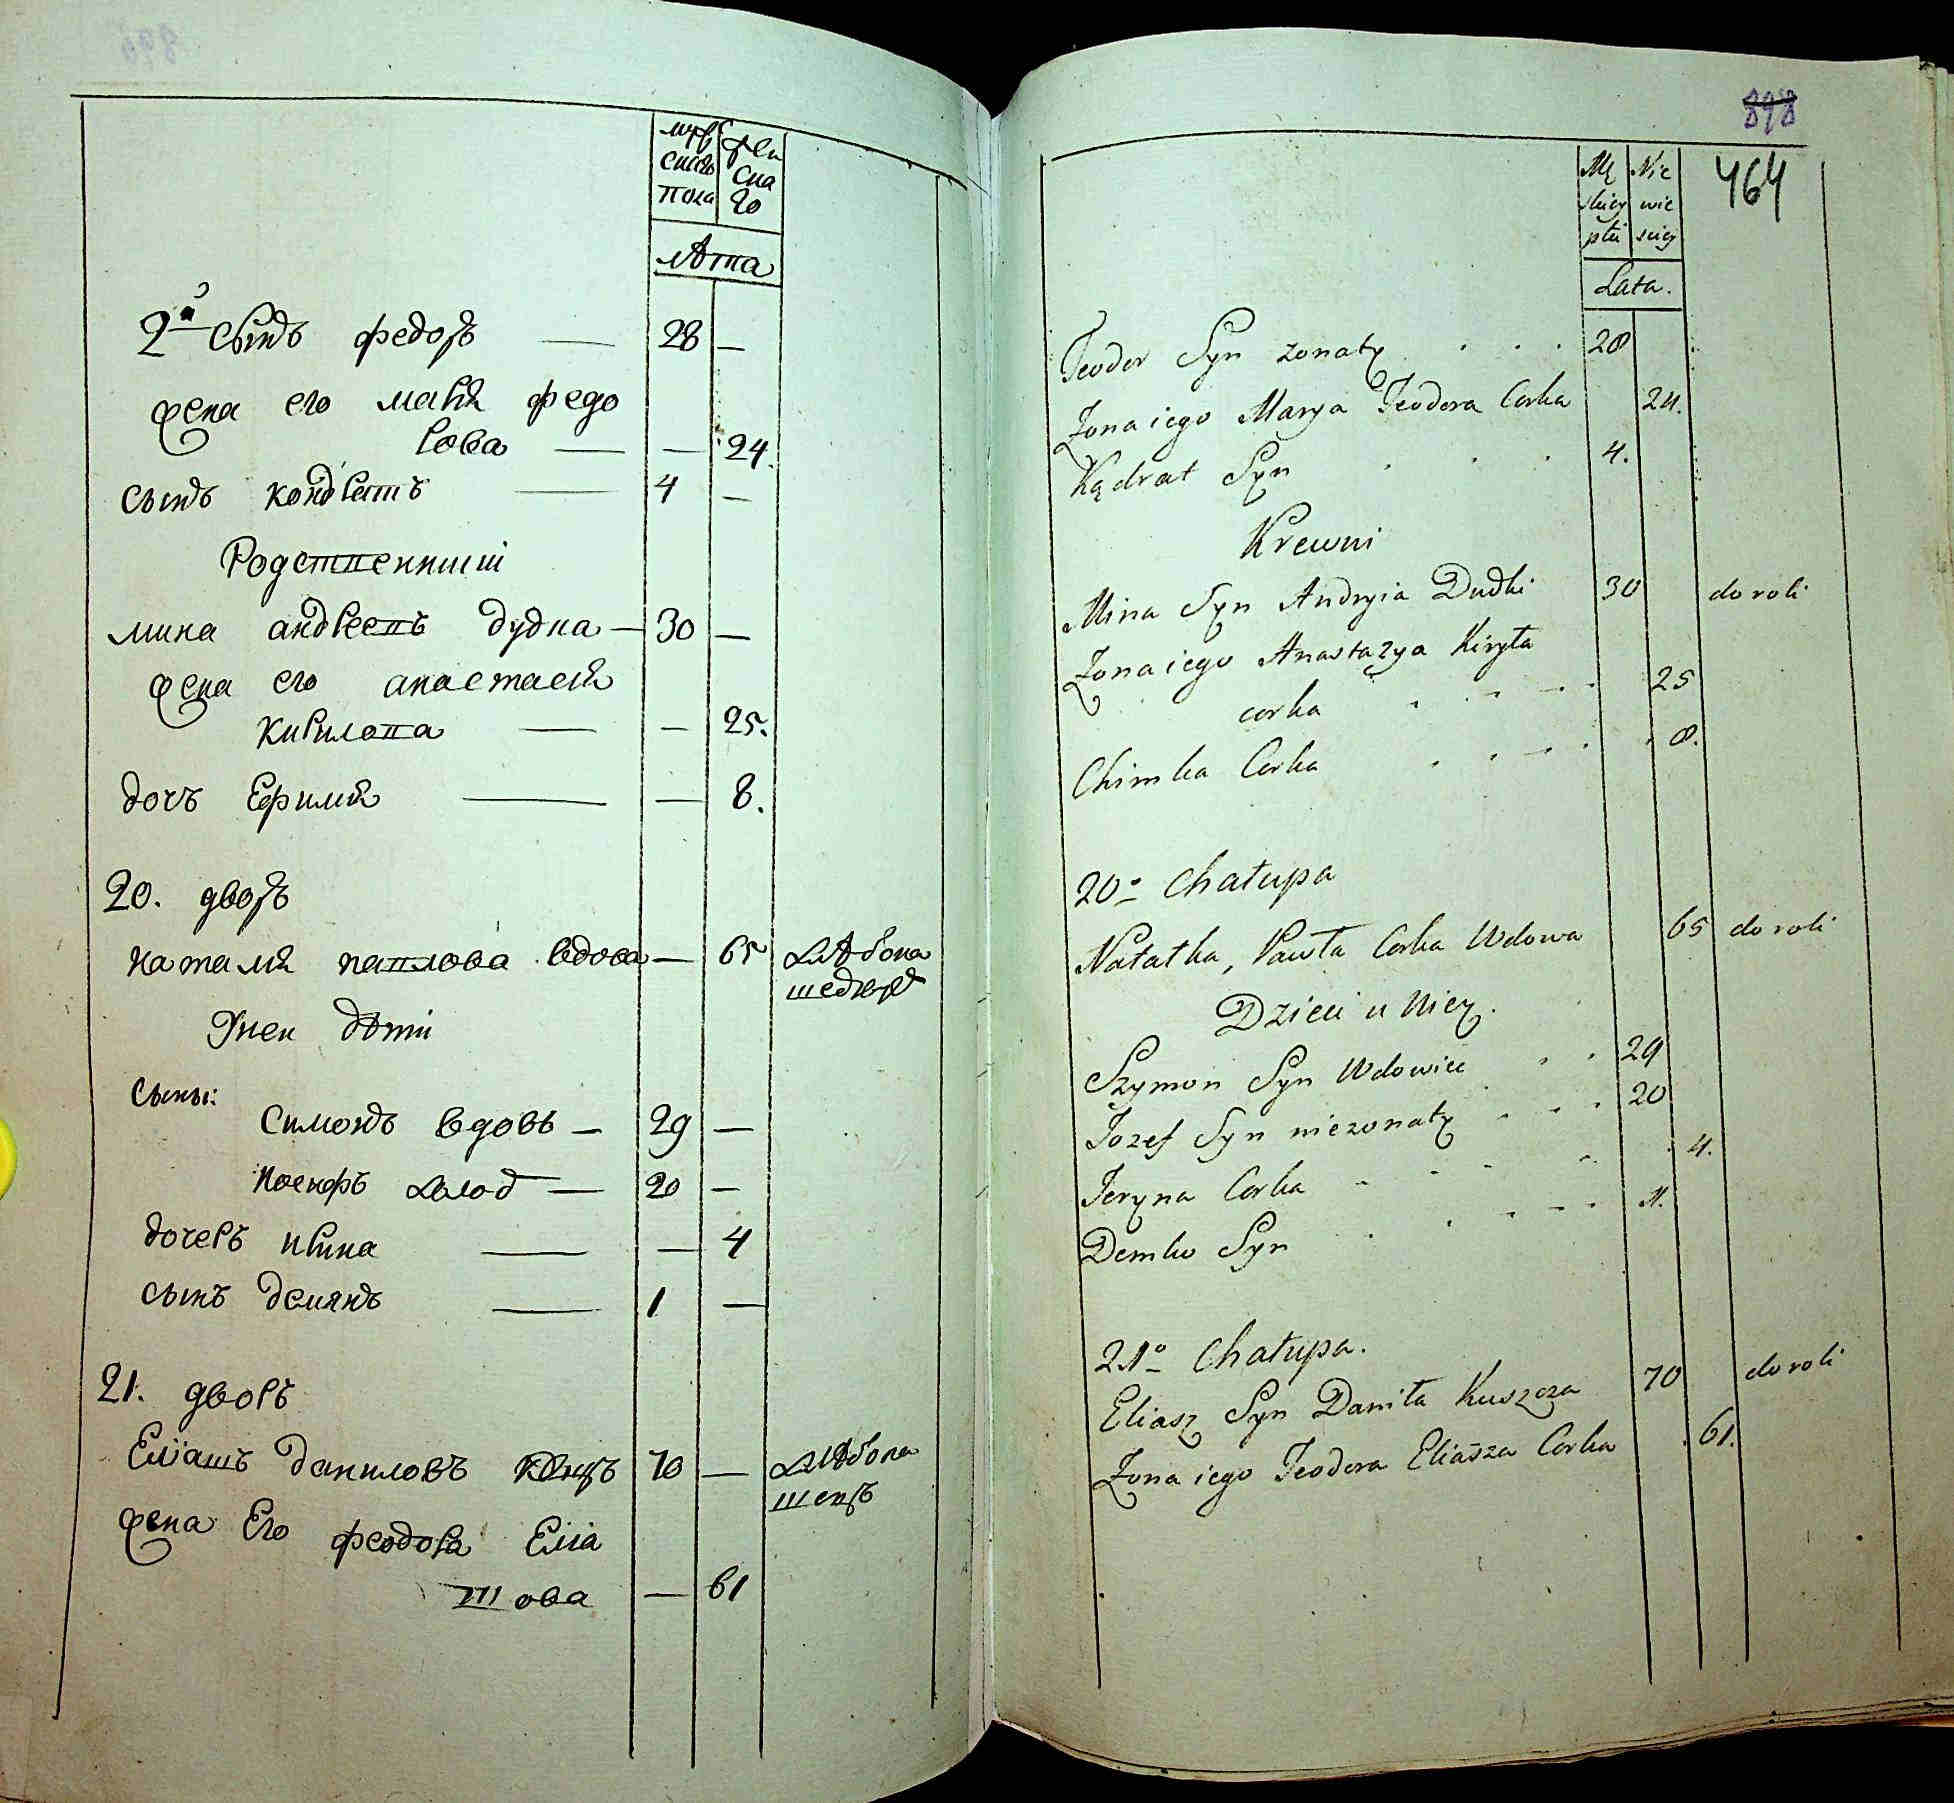 муж
скаго
пола
жен
ска
го
лѣта
2й сынъ федоръ — 28 —
жена его марiя федо
рова — — 24.
сынъ кондратъ — 4 —
Родственники
мина андреевъ дудка — 30 —
жена его анастасiя
кирилова — — 25.
дочь Ефимiя — — 8.
20. дворъ
наталiя павлова вдова — 65 хлѣбопа
шецъ
Унеи дѣти
сыны:
симонъ вдовъ — 29 —
иосифъ холод — 20 —
дочеръ ирина — — 4
сынъ демянъ — 1 —
21. дворъ
Елiашъ даниловъ 70 — хлѣбопа
шецъ
жена Его феодора Елiа
шова — 61
898
464
Mę
skiey
płci
Nie
wie
sciey
Lata.
Teodor Syn żonaty . . . 28
Żona iego Marya Teodora Corka 24.
Kądrat Syn . . . 4.
Krewni
Mina Syn Andryia Dudki 30 do roli
Żona iego Anastazya Kiryła
corka . . . . 25
Chimka Corka . . . . 8.
20o Chałupa
Natałka, Pawła Corka Wdowa 65 do roli
Dzieci u Niey.
Szymon Syn Wdowiec . . 29
Jozef Syn nieżonaty . . . 20
Jeryna Corka . . . . 4.
Demko Syn . . . . 1.
21o Chałupa.
Eliasz Syn Daniła Kuszcza 70 do roli
Żona iego Teodora Eliasza Corka . 61.